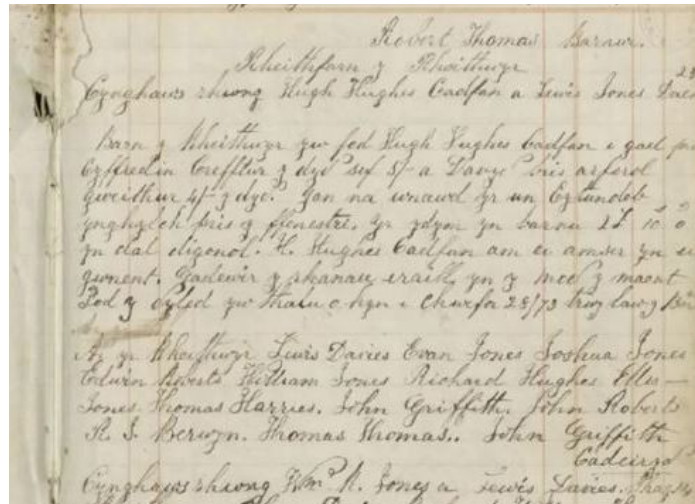 Robert Thomas Barnwr.
Rheithfarn y Rheithwyr
Cynghaws rhwng Hugh Hughes Cadfan a Lewis Jones
Barn y Rheithwyr yw fod Hugh Hughes Cadfan i gael
Cyffredin Crefftwr y dyd sef 5/- a Davyd bris arferol
gweithiwr 4/- y dyd. Gan na wnawd yr un Cytundeb
ynghylch pris y ffenestri, yr ydym yn barnu 2£ 10 0
yn dal digonol. H. Hughes Cadfan am ei amser yn ei
gwneut. Gadewir y rhanau eraill yn y mod y maent
Fod y dyled yw thalu o hyn i Chwefor 28/73 trwy law y
Ar yr Rheithwyr Lewis Davies Evan Jones Joshua Jones
Edwin Roberts William Jones Richard Hughes Ellis —
Jones. Thomas Harries. John Griffith. John Roberts
R. J. Berwyn. Thomas Thomas.. John Griffith
Cadeiryd
Cynghaws rhwng Wm. R. Jones a Lewis Davies.